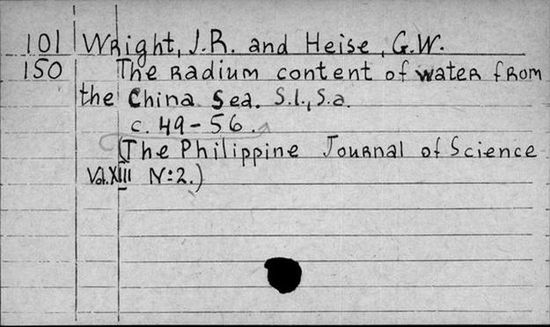 101 Wright, J.R. and Heise, G.W.
150 The Radium content of water from
the China Sea. S.l., S.a.
c. 49-56.
(The Philippine Journal of Science
Vol. XIII N:2.)